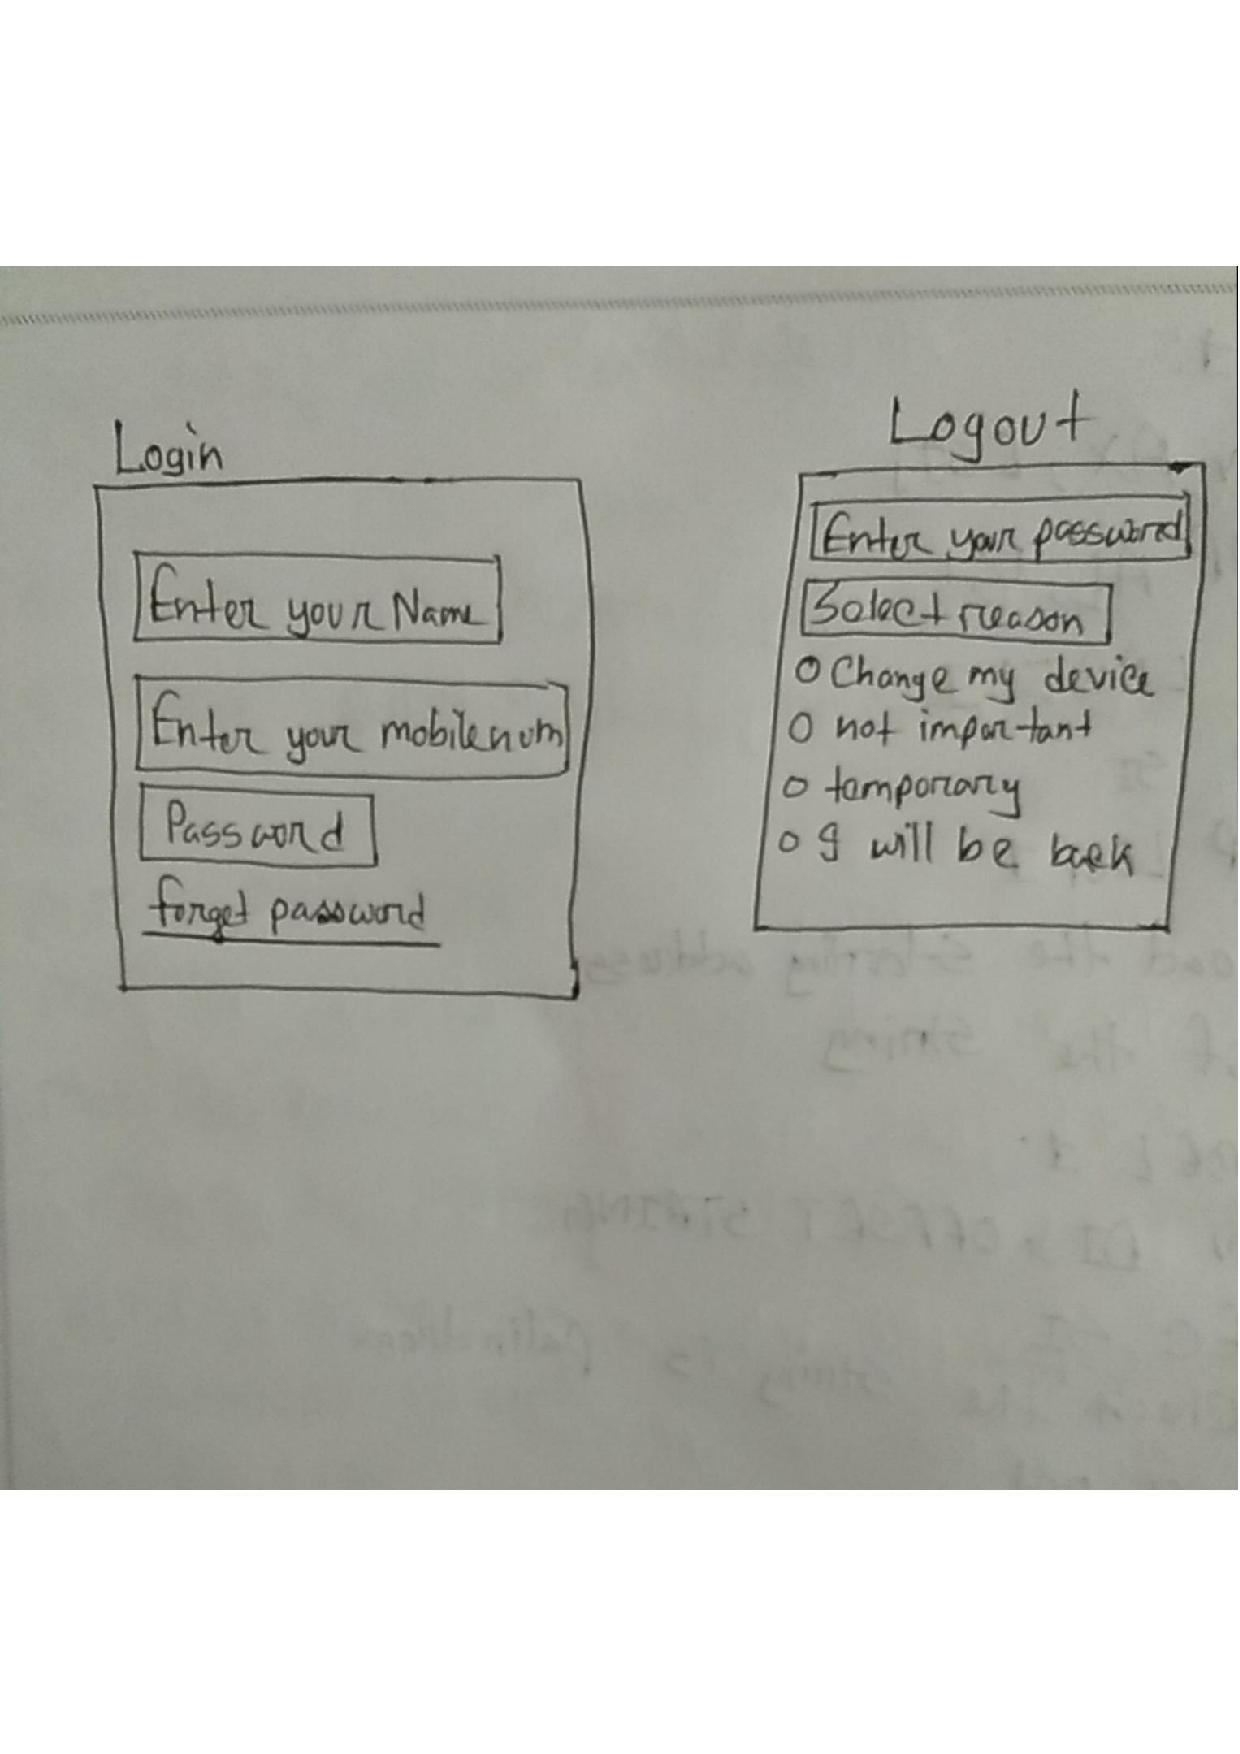 Login
Enter your Name
Enter your mobilenum
Password
forget password
Logout
Enter your password
Select reason
O Change my device
O not important
O temporary
O I will be back